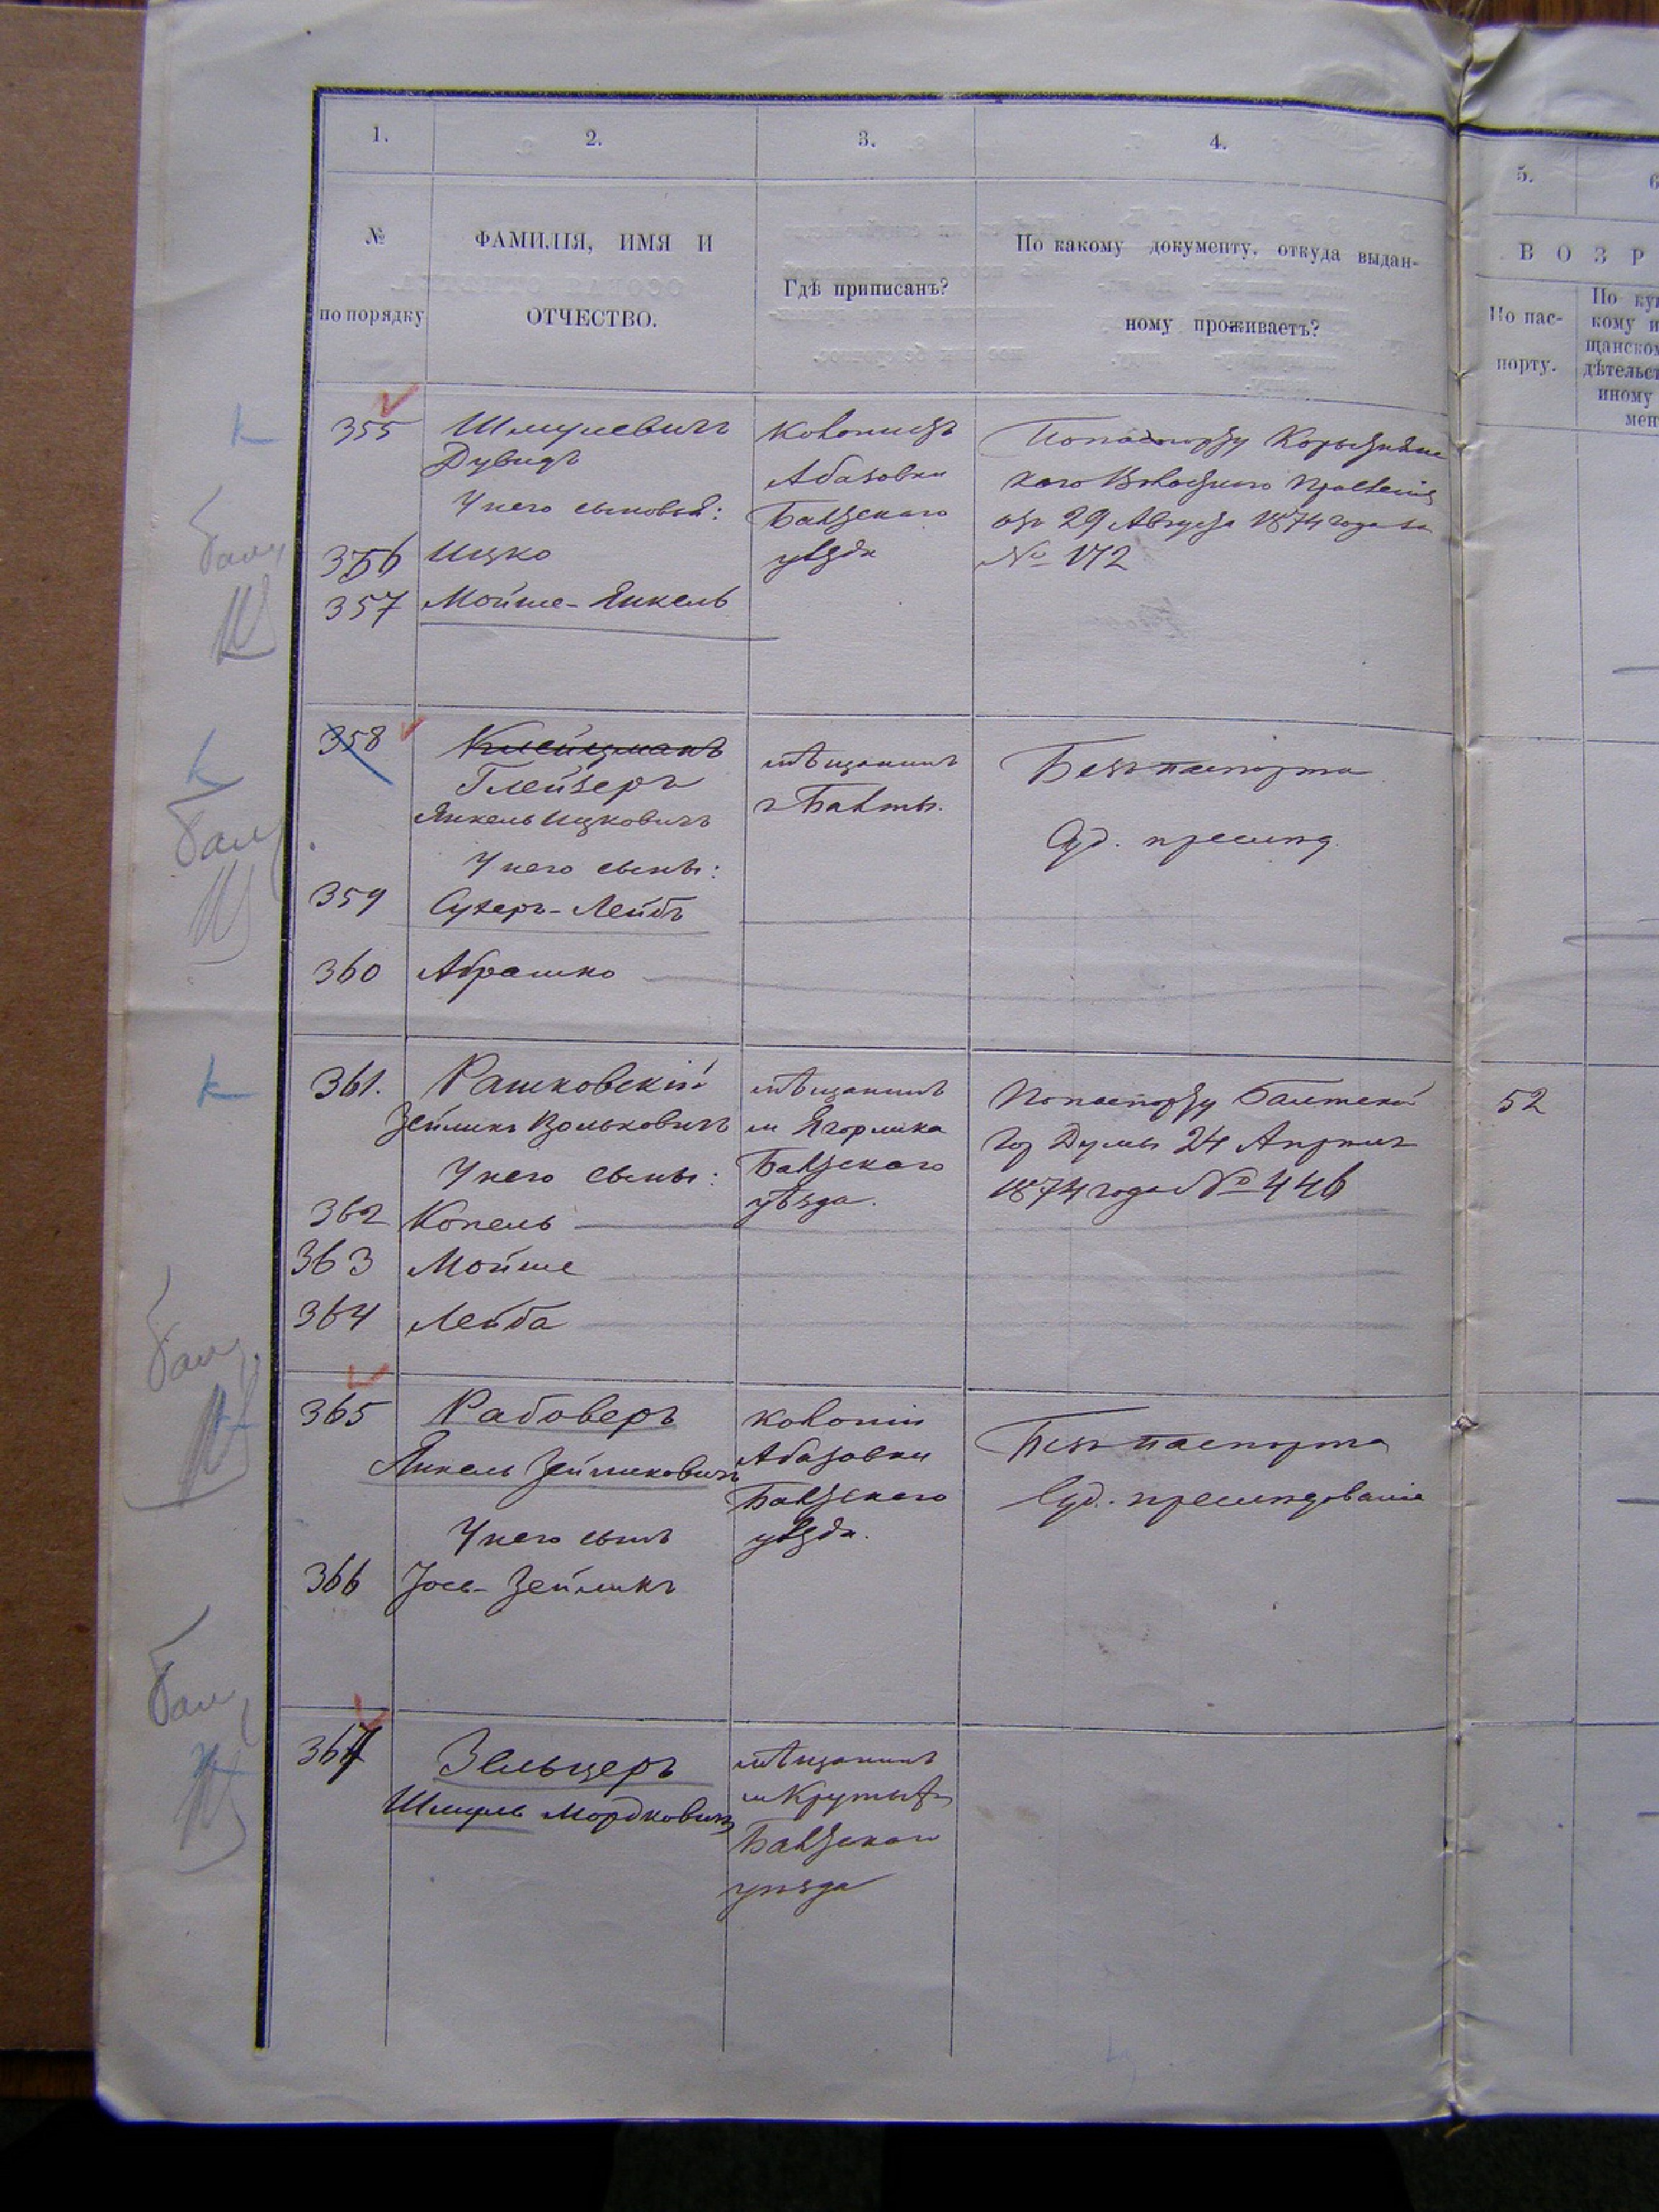 1. 2. 3. 4.
5. 6
№
по порядку
ФАМИЛІЯ, ИМЯ И
ОТЧЕСТВО.
Гдѣ приписанъ?
По какому документу, откуда выдан-
ному проживаетъ?
ВОЗР
По пас-
порту.
По куп
кому и
щанском
дѣтельст
иному
мен
355 Шмулевичъ
Дувидъ
У него сыновья:
356 Ицко
357 Мойше-Янкель
Колонистъ
Абазовки
Балтского
уѣзда
По паспорту
Волостного Правленія
отъ 29 Августа 1874 года за
№ 172
358 Клейцманъ
Глейзеръ
Янкель Ицковичъ
У него сыны:
359 Сухеръ-Лейбъ
360 Абрашко
мѣщанинъ
г Балты.
Безъ паспорта
Суд. преслѣд.
361. Рашковскій
Зейликъ Вольковичъ
У него сыны:
362 Копель
363 Мойше
364 Лейба
мѣщанинъ
м Ягорлика
Балтского
уѣзда.
По паспорту Балтской
Гор Думы 24 Апрѣля
1874 года № 446
52
365 Рабоверъ
Янкель Зейликовичъ
У него сынъ
366 Іось-Зейликъ
колоніи
Абазовки
Балтского
уѣзда.
Безъ паспорта
Суд. преслѣдованіе
367 Зельцеръ
Шмуль Мордковичъ
мѣщанинъ
м Крутыхъ
Балтского
уѣзда
к
Балт
к
Балт.
к
Балт.
Балт